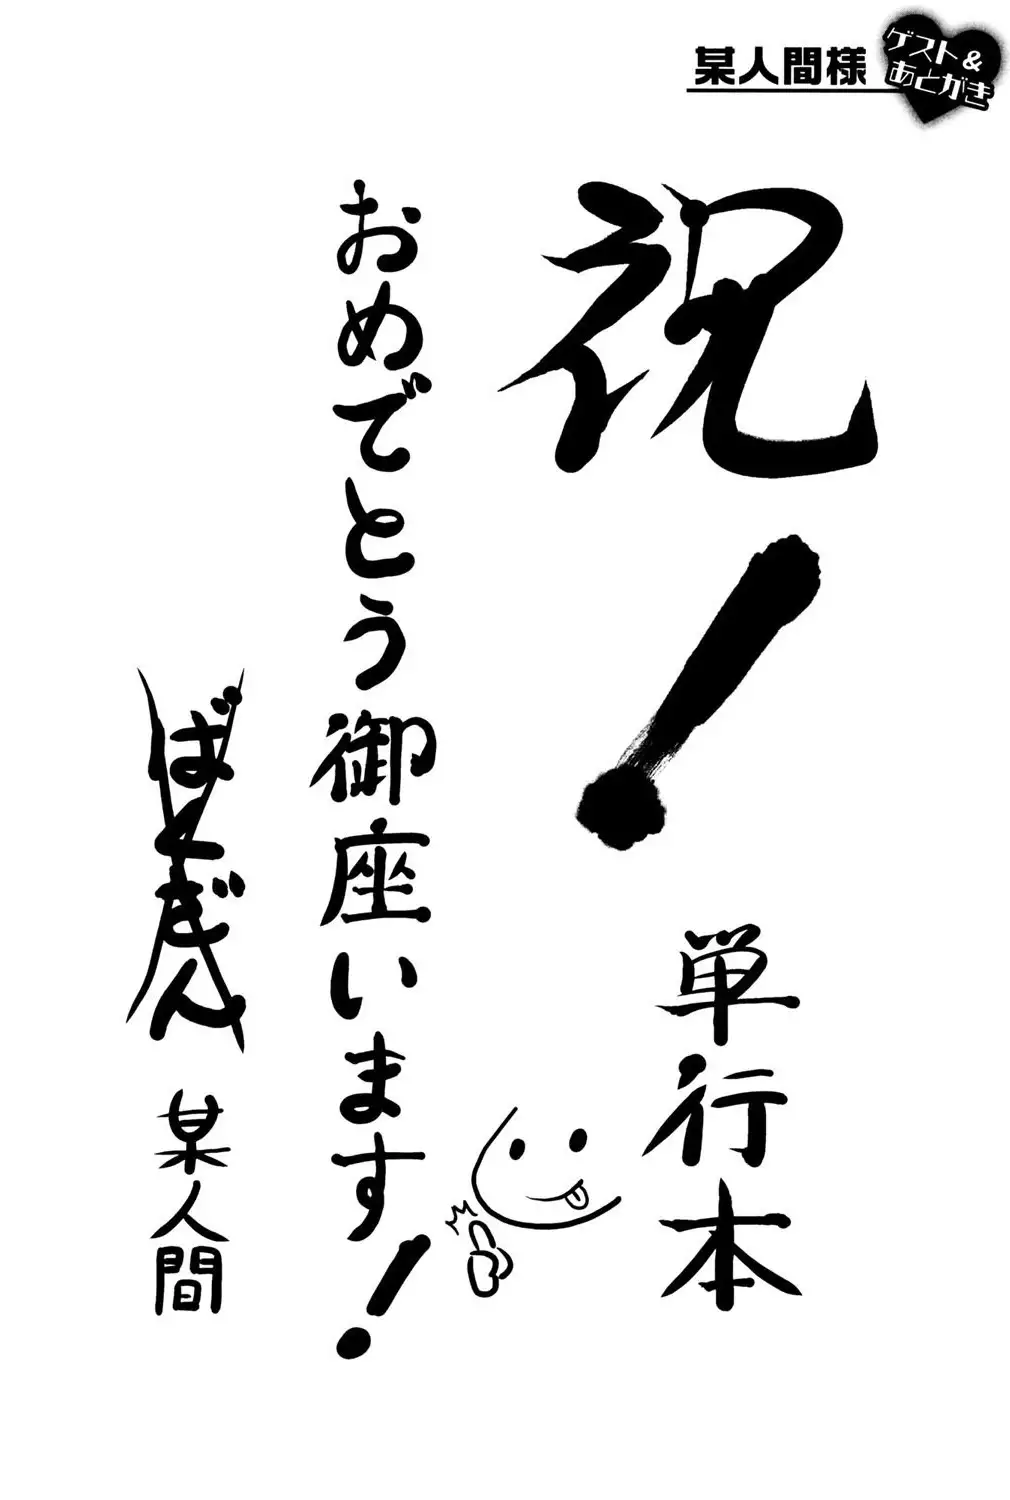 某人間様
ゲスト&
あとがき
祝!
単行本
おめでとう御座います!
ばくぎん 某人間